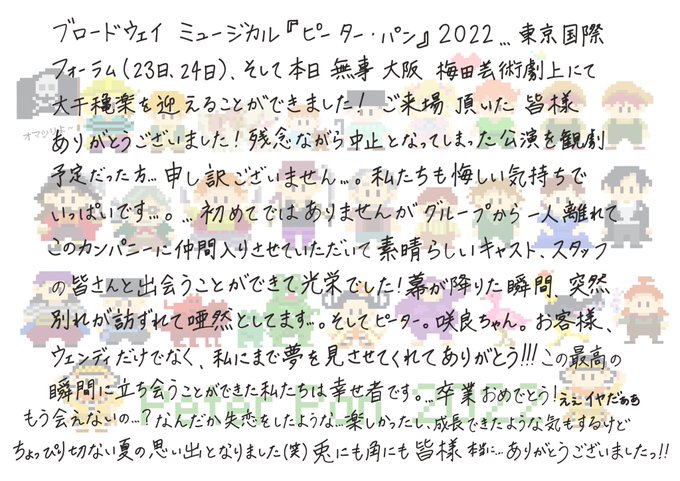 ブロードウェイ ミュージカル『ピーター・パン』2022...東京国際
フォーラム(23日、24日)、そして本日 無事 大阪 梅田芸術劇上にて
大千穐楽を迎えることができました! ご来場 頂いた 皆様
ありがとうございました!残念ながら中止となってしまった公演を観劇
予定だった方...申し訳ございません...。私たちも悔しい気持ちで
いっぱいです...。...初めてではありませんがグループから一人離れて
このカンパニーに仲間入りさせていただいて素晴らしいキャスト、スタッフ
の皆さんと出会うことができて光栄でした!幕が降りた瞬間、突然
別れが訪ずれて唖然としてます...。そしてピーター。咲良ちゃん。お客様、
ウェンディだけでなく、私にまで夢を見させてくれてありがとう!!!この最高の
瞬間に立ち会うことができた私たちは幸せ者です。...卒業おめでとう!ええイヤだぁぁ
もう会えないの...?なんだか失恋をしたような...楽しかったし、成長できたような気もするけど
ちょっぴり切ない夏の思い出となりました(笑)兎にも角にも皆様 本当に...ありがとうございましたっ!!
オマツリ
Peter Pan 2022